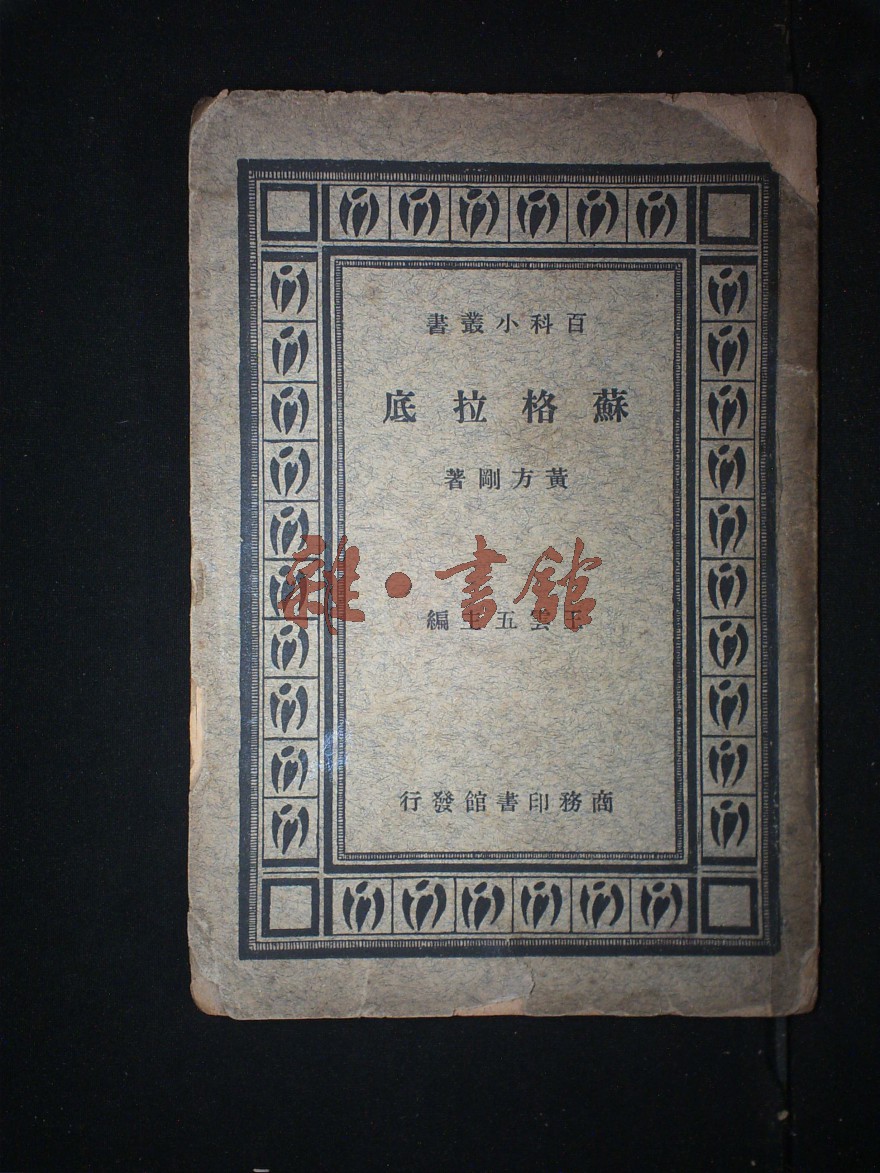 百科小叢書
蘇格拉底
黃方剛著
雜·書館
王雲五主編
商務印書館發行